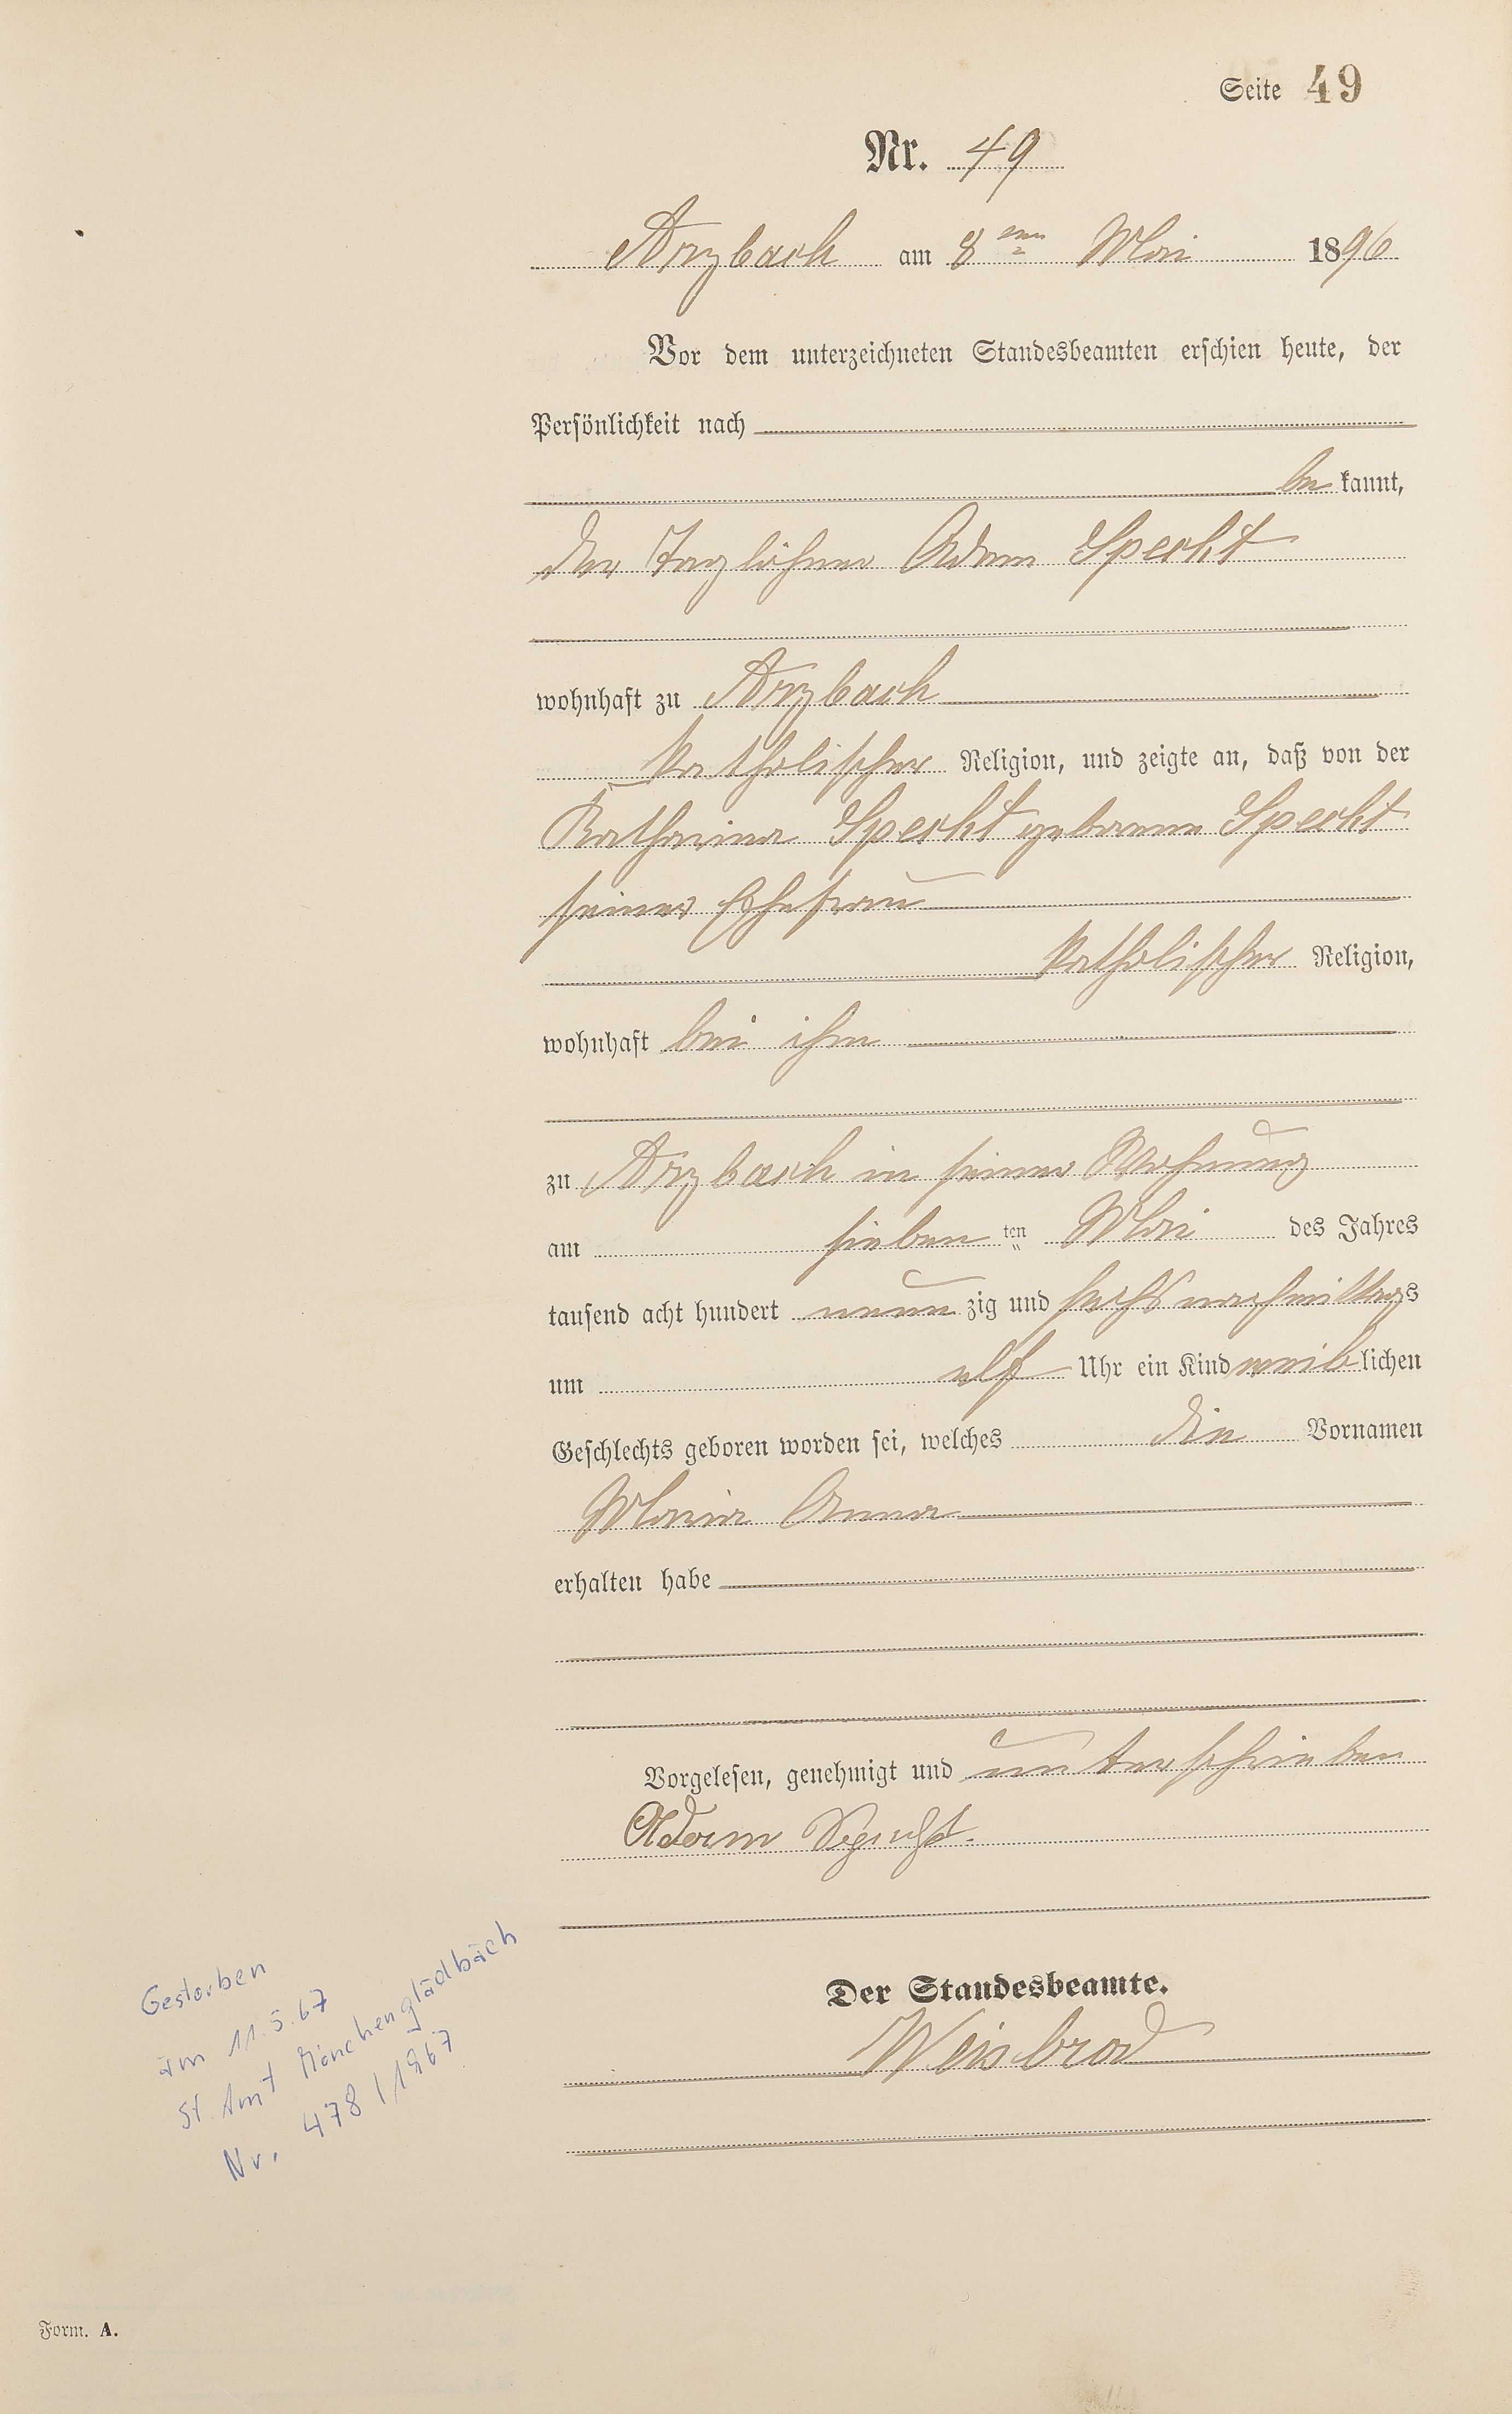 Seite 49
Nr. 49
Arzbach am 8ten Mai 1896
Vor dem unterzeichneten Standesbeamten erschien heute, der
Persönlichkeit nach
be kannt,
der Taglöhner Adam Specht
wohnhaft zu Arzbach
katholischer Religion, und zeigte an, daß von der
Katharina Specht geborene Specht
seiner Ehefrau
katholischer Religion,
wohnhaft bei ihm
zu Arzbach in seiner Wohnung
am sieben ten Mai des Jahres
tausend acht hundert neun zig und sechs nachmittags
um elf Uhr ein Kind weiblichen
Geschlechts geboren worden sei, welches die Vornamen
Maria Anna
erhalten habe
Vorgelesen, genehmigt und unterschrieben
Adam Specht.
Der Standesbeamte.
Weisbrod
Gestorben
am 11.5.67
St. Amt Mönchengladbach
Nr. 478/1967
Form. A.